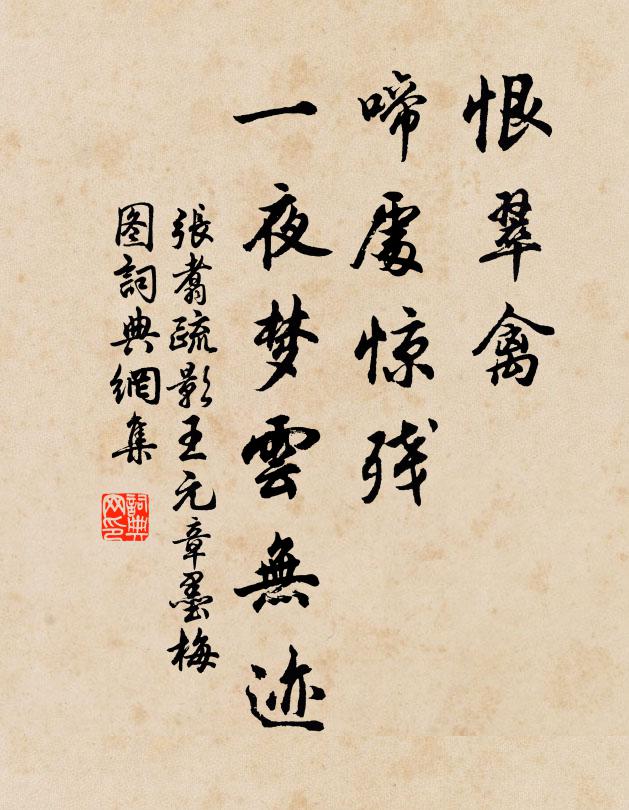 恨翠禽
啼處惊残
一夜梦雲無迹
張翥疏影王元章墨梅
图詞典網集
詞典
网印